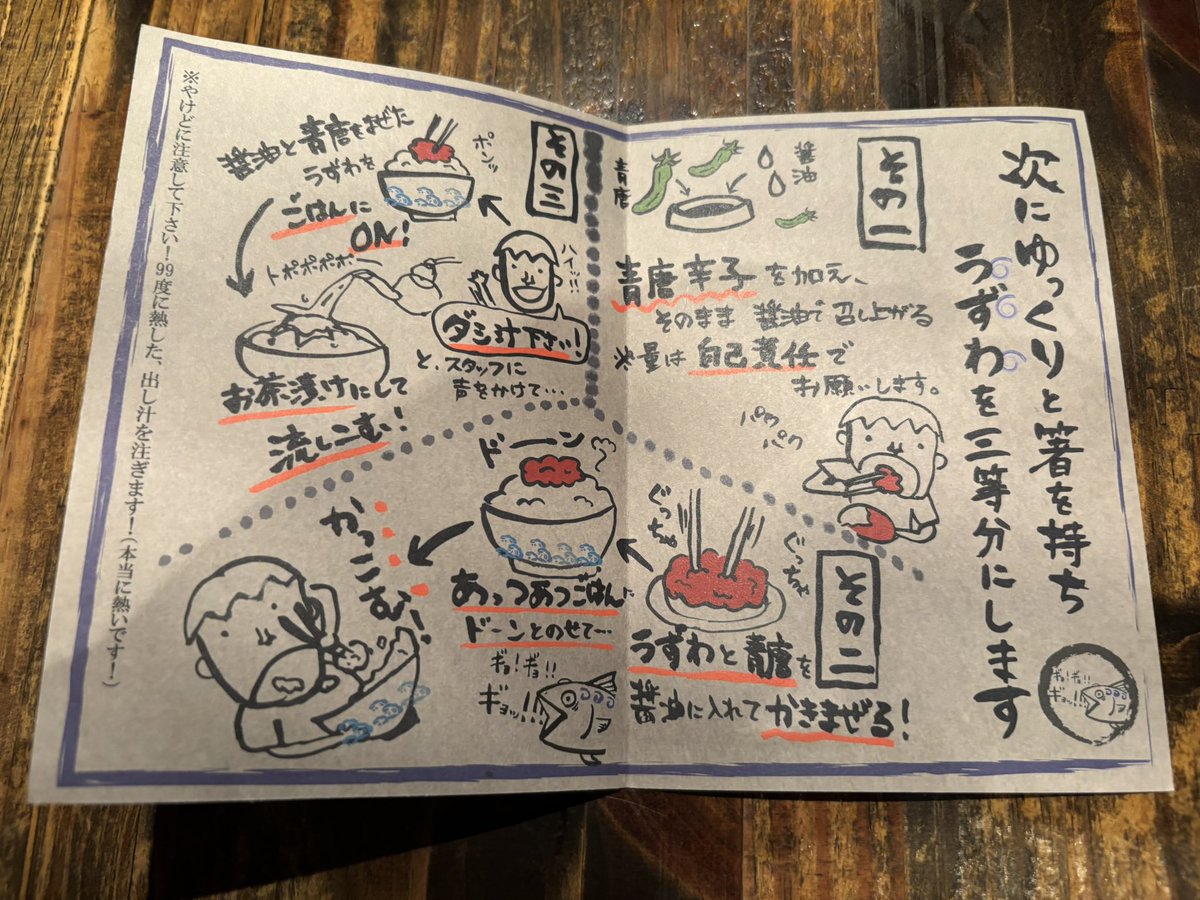 次にゆっくりと箸を持ち
うずわを三等分にします
ギョ!ギョ!!
ギョッ!!
その一
醤油
青唐
青唐辛子を加え、
そのまま 醤油で召し上がる
※量は自己責任で
お願いします。
パク
パク
その二
ぐっちゃ
ぐっちゃ
うずわと青唐を
醤油に入れてかきまぜる!
ドーン
あっつあつごはんに
ドーンとのせて…
かっこむ!
ギョ!ギョ!!
ギョッ!!
その三
ハイ!!
ダシ汁下さい!
と、スタッフに
声をかけて…
ポンッ
醤油と青唐をまぜた
うずわを
ごはんに
ON!
トポポポポ
お茶漬けにして
流しこむ!
※やけどに注意して下さい!99度に熱した、出し汁を注ぎます!(本当に熱いです!)